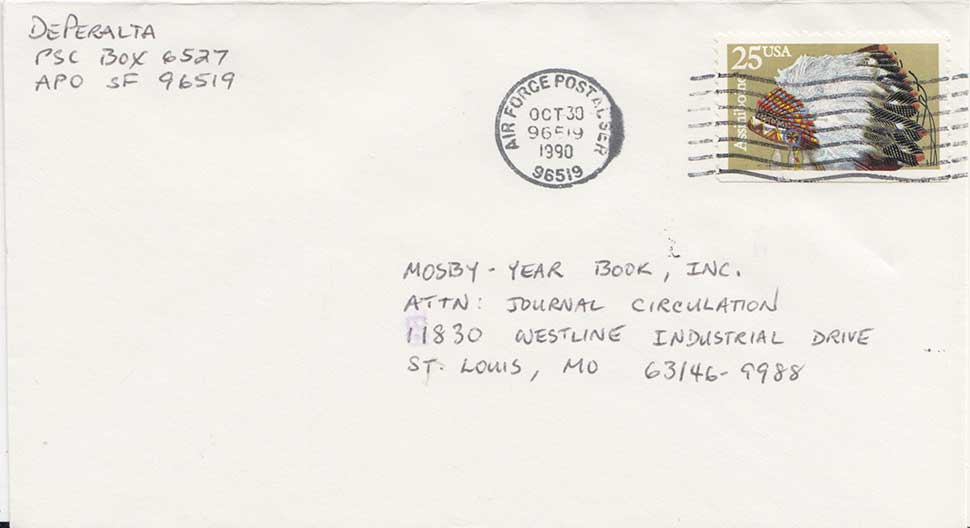 DePERALTA
PSC BOX 6527
APO SF 96519
AIR FORCE POSTAL SER
OCT 30
96519
1990
96519
25 USA
Assiniboine
MOSBY - YEAR BOOK, INC.
ATTN: JOURNAL CIRCULATION
11830 WESTLINE INDUSTRIAL DRIVE
ST. LOUIS, MO 63146-9988